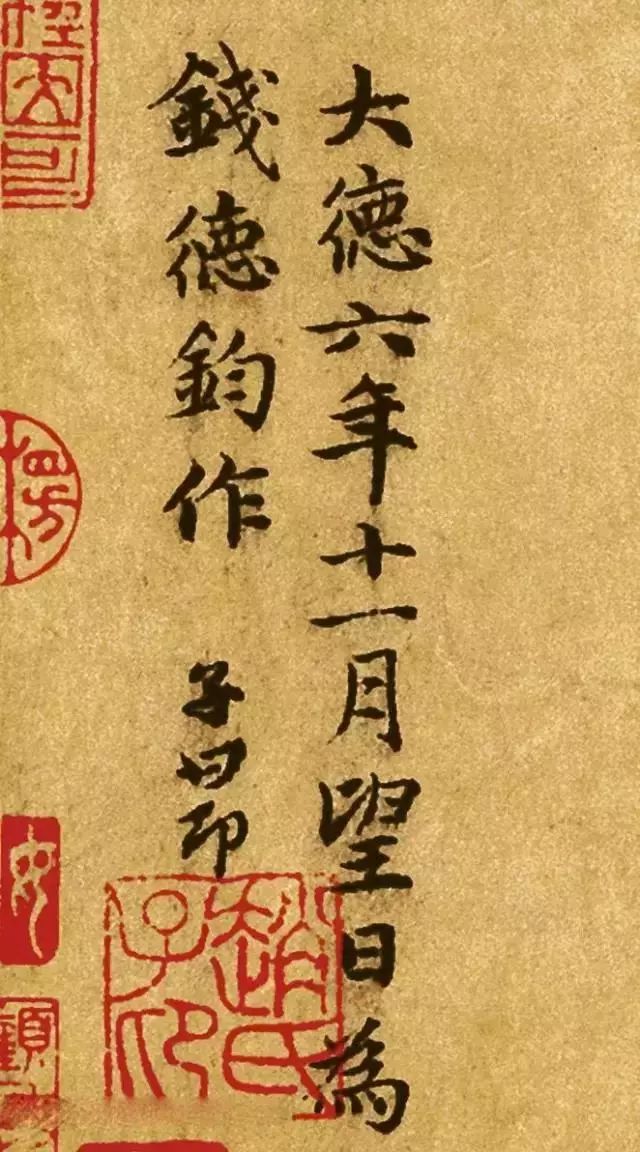 大德六年十一月望日為
錢德鈞作 子昂
趙氏子印